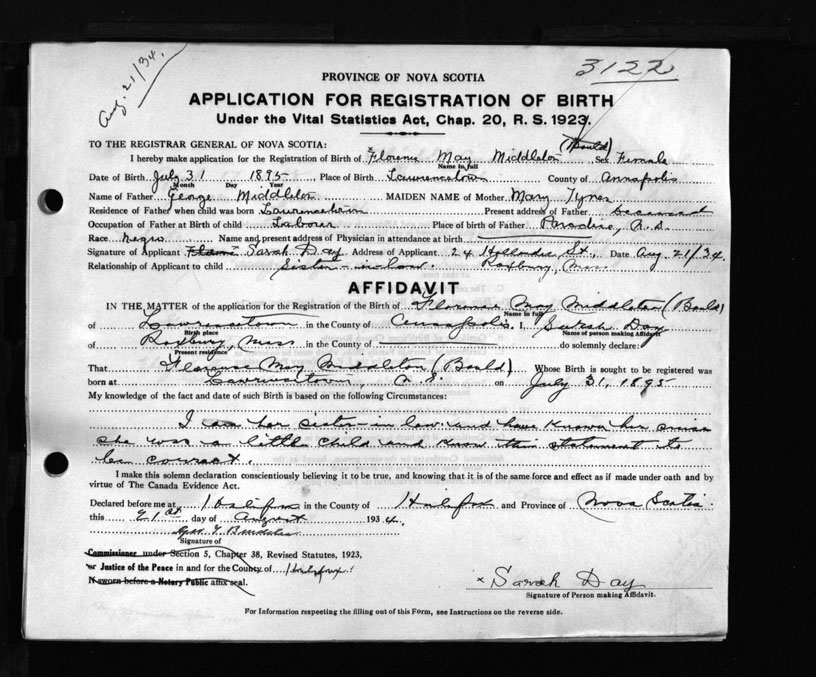 Aug. 21/34.
3122
PROVINCE OF NOVA SCOTIA
APPLICATION FOR REGISTRATION OF BIRTH
Under the Vital Statistics Act, Chap. 20, R. S. 1923.
TO THE REGISTRAR GENERAL OF NOVA SCOTIA:
(Bauld)
I hereby make application for the Registration of Birth of Florence May Middleton Sex Female
Name in full
Date of Birth July 31 1895 Place of Birth Lawrencetown County of Annapolis
Month Day Year
Name of Father George Middleton MAIDEN NAME of Mother Mary Tynes
Residence of Father when child was born Lawrencetown Present address of Father deceased
Occupation of Father at Birth of child Laborer Place of birth of Father Paradise, N.S.
Race Negro Name and present address of Physician in attendance at birth
Signature of Applicant Sarah Day Address of Applicant 24 Hollander St., Date Aug 21/34.
Relationship of Applicant to child Sister-in-law. Roxbury, Mass.
AFFIDAVIT
IN THE MATTER of the application for the Registration of the Birth of Florence May Middleton (Bauld)
Name in full
of Lawrencetown in the County of Annapolis. I, Sarah Day
Birth place Name of person making Affidavit
of Roxbury, Mass in the County of do solemnly declare:
Present residence
That Florence May Middleton (Bauld) Whose Birth is sought to be registered was
born at Lawrencetown, N.S. on July 31, 1895
My knowledge of the fact and date of such Birth is based on the following Circumstances:
I am her sister-in law and have known her since
she was a little child and know this statement to
be correct.
I make this solemn declaration conscientiously believing it to be true, and knowing that it is of the same force and effect as if made under oath and by
virtue of The Canada Evidence Act.
Declared before me at Halifax in the County of Halifax and Province of Nova Scotia
this 21st day of August 1934.
Signature of
Commissioner under Section 5, Chapter 38, Revised Statutes, 1923,
or Justice of the Peace in and for the County of Halifax
If sworn before a Notary Public affix seal.
x Sarah Day
Signature of Person making Affidavit.
For Information respecting the filling out of this Form, see Instructions on the reverse side.